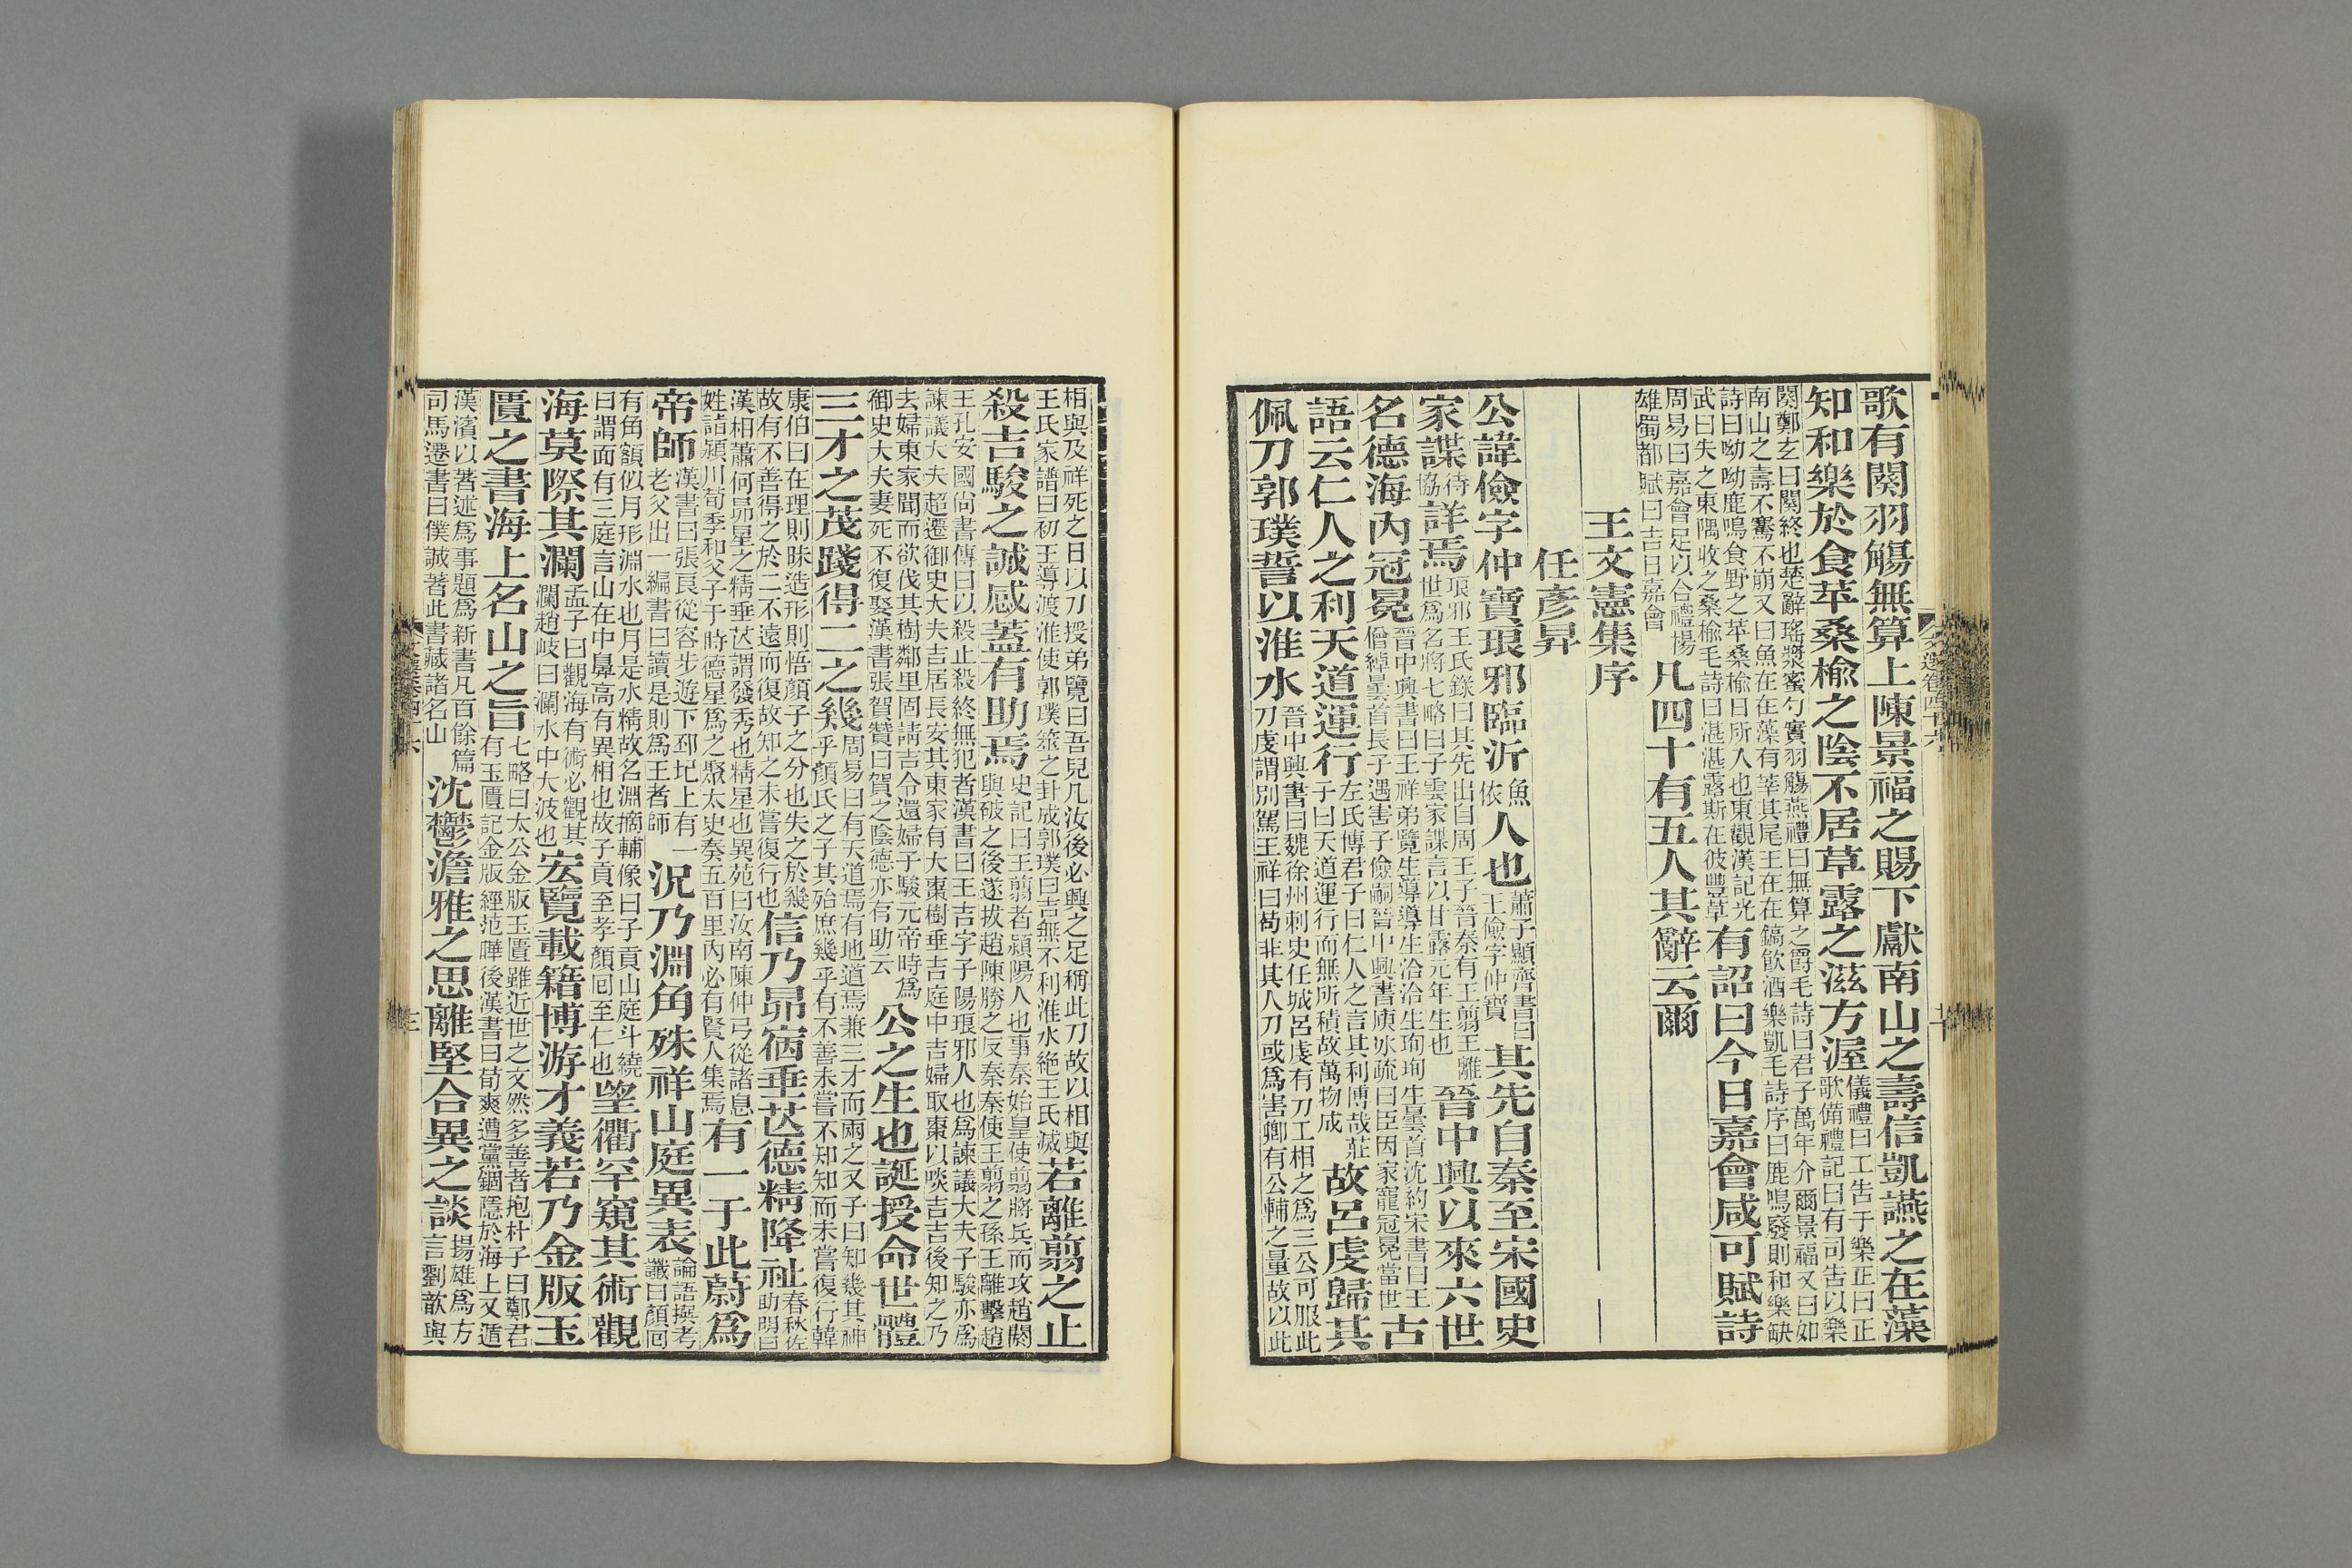 歌有闋羽觴無算上陳景福之賜下獻南山之壽信凱讌之在藻
知和樂於食苹桑榆之陰不居草露之滋方渥儀禮曰工告于樂正曰正歌備禮記曰有司告以樂
闋鄭玄曰闋終也楚辭瑤漿蜜勺實羽觴燕禮曰無算之爵毛詩曰君子萬年介爾景福又曰如
南山之壽不騫不崩又曰魚在在藻有莘其尾王在在鎬飲酒樂凱毛詩序曰鹿鳴廢則和樂缺
詩曰呦呦鹿鳴食野之苹桑榆日所入也東觀漢記光
武曰失之東隅收之桑榆毛詩曰湛湛露斯在彼豐草有詔曰今日嘉會咸可賦詩
周易曰嘉會足以合禮揚
雄蜀都賦曰吉日嘉會凡四十有五人其辭云爾
王文憲集序
任彥昇
公諱儉字仲寶琅邪臨沂魚依人也蕭子顯齊書曰王儉字仲寶其先自秦至宋國史
家諜待協詳焉琅邪王氏錄曰其先出自周王子晉秦有王翦王離世爲名將七略曰子雲家諜言以甘露元年生也晉中興以來六世
名德海內冠冕晉中興書曰王祥弟覽生導導生洽洽生珣珣生曇首沈約宋書曰王僧綽曇首長子遇害子儉嗣晉中興書庾冰疏曰臣因家寵冠冕當世古
語云仁人之利天道運行左氏博君子曰仁人之言其利博哉莊子曰天道運行而無所積故萬物成故呂虔歸其
佩刀郭璞誓以淮水晉中興書曰魏徐州刺史任城呂虔有刀工相之爲三公可服此刀虔謂別駕王祥曰苟非其人刀或爲害卿有公輔之量故以此
文選卷四十六
相與及祥死之日以刀授弟覽曰吾兒凡汝後必興之足稱此刀故以相與
王氏家譜曰初王導渡淮使郭璞筮之卦成郭璞曰吉無不利淮水絕王氏滅若離翦之止
殺吉駿之誠感蓋有助焉史記曰王翦者潁陽人也事秦始皇使翦將兵而攻趙閼與破之後遂拔趙陳勝之反秦秦使王翦之孫王離擊趙
王孔安國尚書傳曰以殺止殺終無犯者漢書曰王吉字子陽琅邪人也爲諫議大夫子駿亦爲
諫議大夫超遷御史大夫吉居長安其東家有大棗樹垂吉庭中吉婦取棗以啖吉吉後知之乃
去婦東家聞而欲伐其樹鄰里固請吉令還婦子駿元帝時爲
御史大夫妻死不復娶漢書張賀贊曰賀之陰德亦有助云公之生也誕授命世體
三才之茂踐得二之幾周易曰有天道焉有地道焉兼三才而兩之又子曰知幾其神乎顏氏之子其殆庶幾乎有不善未嘗不知知而未嘗復行韓
康伯曰在理則昧造形則悟顏子之分也失之於幾
故有不善得之於二不遠而復故知之未嘗復行也信乃昴宿垂芒德精降祉春秋佐助期曰
漢相蕭何昴星之精垂芒謂發秀也精星也異苑曰汝南陳仲弓從諸息
姓詣潁川荀季和父子于時德星爲之聚太史奏五百里內必有賢人集焉有一于此蔚爲
帝師漢書曰張良從容步遊下邳圯上有一老父出一編書曰讀是則爲王者師況乃淵角殊祥山庭異表論語撰考讖曰顏回
有角額似月形淵水也月是水精故名淵摘輔像曰子貢山庭斗繞
曰謂面有三庭言山在中鼻高有異相也故子貢至孝顏回至仁也望衢罕窺其術觀
海莫際其瀾孟子曰觀海有術必觀其瀾趙岐曰瀾水中大波也宏覽載籍博游才義若乃金版玉
匱之書海上名山之旨七略曰太公金版玉匱雖近世之文然多善者抱朴子曰鄭君有玉匱記金版經范曄後漢書曰荀爽遭黨錮隱於海上又遁
漢濱以著述爲事題爲新書凡百餘篇
司馬遷書曰僕誠著此書藏諸名山沈鬱澹雅之思離堅合異之談揚雄爲方言劉歆與